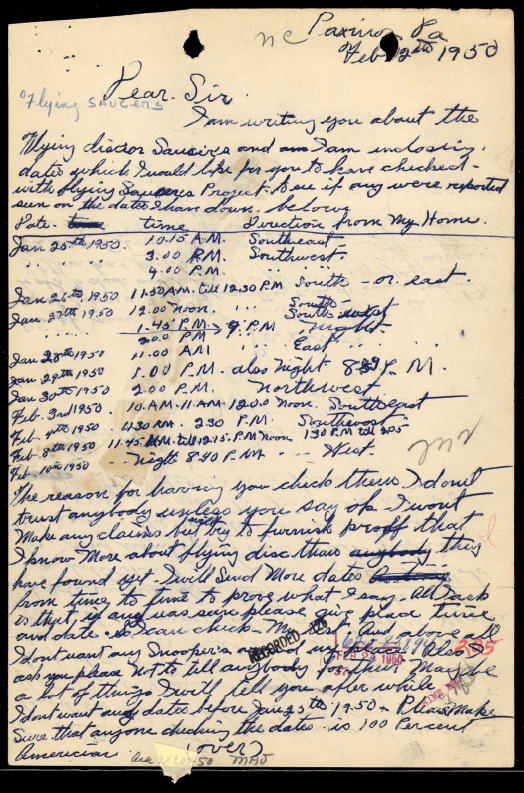 nc
Paxinos Pa
Feb 12th 1950
Dear Sir.
Flying SAUCERS
I am writing you about the
Flying disc or Saucers and I am inclosing.
dates which I would like for you to have checked -
with flying Saucers Project. To see if any were reported
seen on the dates I have down. below
Date. time time Direction from My Home.
Jan 25th 1950. 10.15 A.M. Southeast
" " " 3.00 P.M. Southwest.
" " " 4.00 P.M. " "
Jan 26th 1950 11.50 A.M. till 12.30 P.M. South - or. east.
Jan 27th 1950 12.00 Noon. " " South-
1.45 P.M. → 9 P.M South west
2.00 PM " Night
Jan 28th 1950 11.00 AM East
Jan 29th 1950 1.00 P.M. also Night 8 P.M.
Jan 30th 1950 2.00 P.M. Northwest
Feb. 3rd 1950. 10.AM-11.AM-12.00 Noon. Southeast
Feb. 4th 1950 11.30 AM. 2.30 P.M. Southwest
Feb. 8th 1950 11.45 AM. till 12.15. P.M Noon 1.30 P.M till 2.05
Feb. 10th 1950 - - Night 8.40 P.M - - West.
The reason for having you check these I dont
trust anybody unless you say ok. I wont
Make any claims but try to furnish proff that
I know More about flying disc than anybody they
have found yet. I will Send More dates
from time to time to prove what I say. All I ask
is that, if any was seen please give place time
and date. so I can check. My And above all
I dont want any Snooper's around my place. Also I
ask you please Not to tell anybody May be
a lot of things I will tell you after while.
I dont want any dates before Jan 25th 1950 - Please Make
Sure that anyone checking the dates is 100 Percent
American. (over)
RECORDED
FEB 24 1950
MAJ